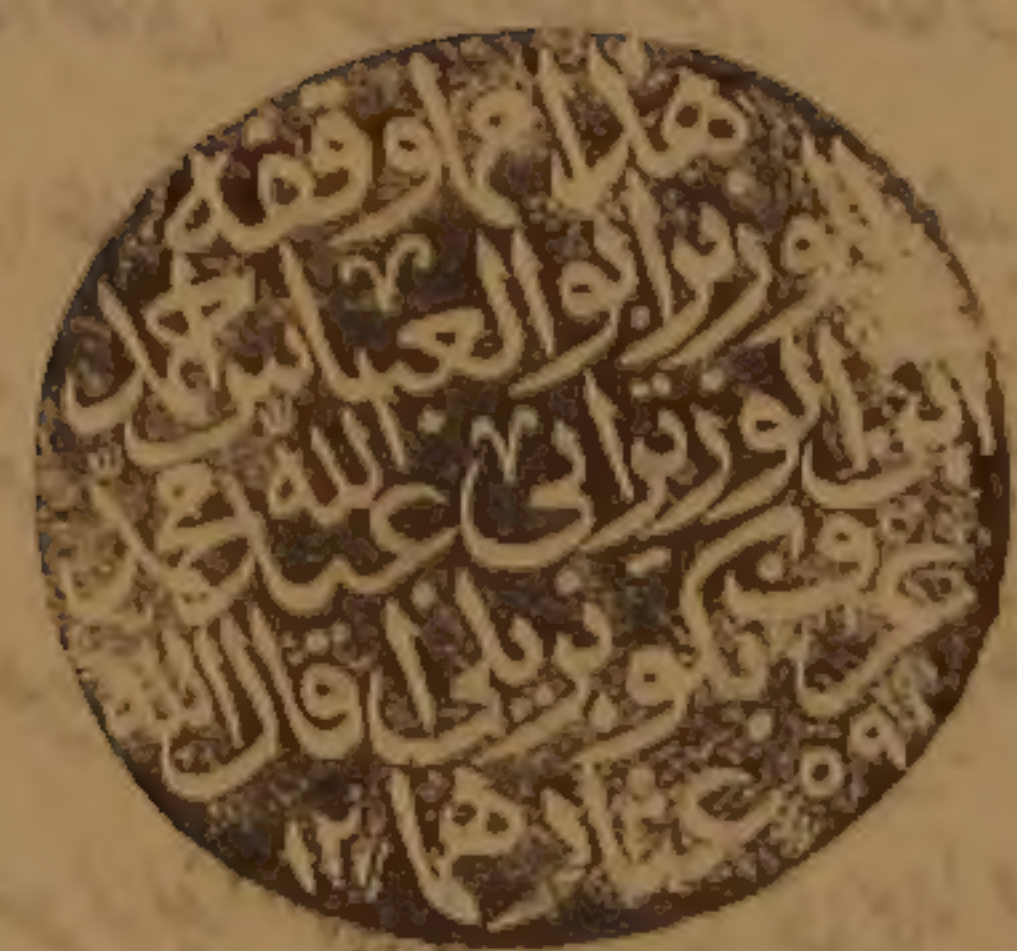 هذا ما وقفه
الوزير ابو العباس احمد
ابن الوزير ابى عبد الله محمد
عرف بكوبريلى اقال الله
عثارهما